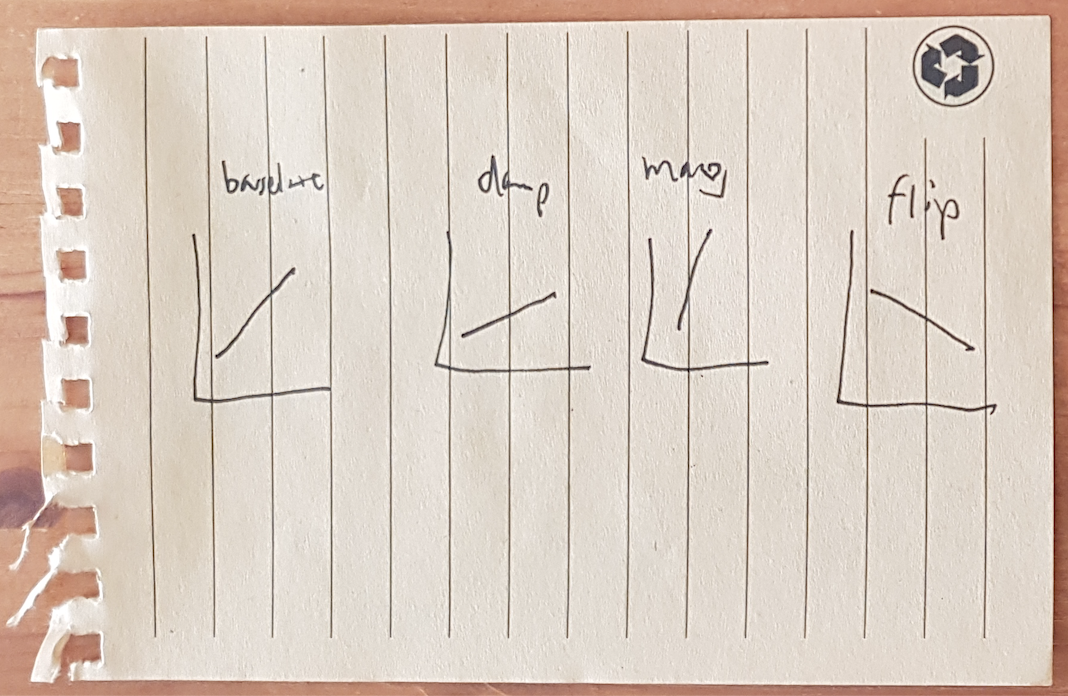 baseline
damp
mag
flip